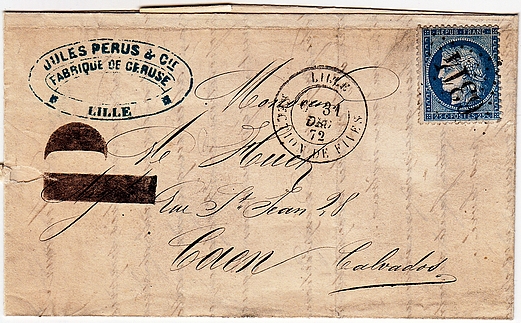 JULES PERUS & CIE
FABRIQUE DE CERUSE
LILLE
LILLE
31
DEC
72
SECTION DE FIVES
REPUB. FRANC.
25 C. POSTES 25 C.
Monsieur
Rue St Jean 28
Caen
Calvados